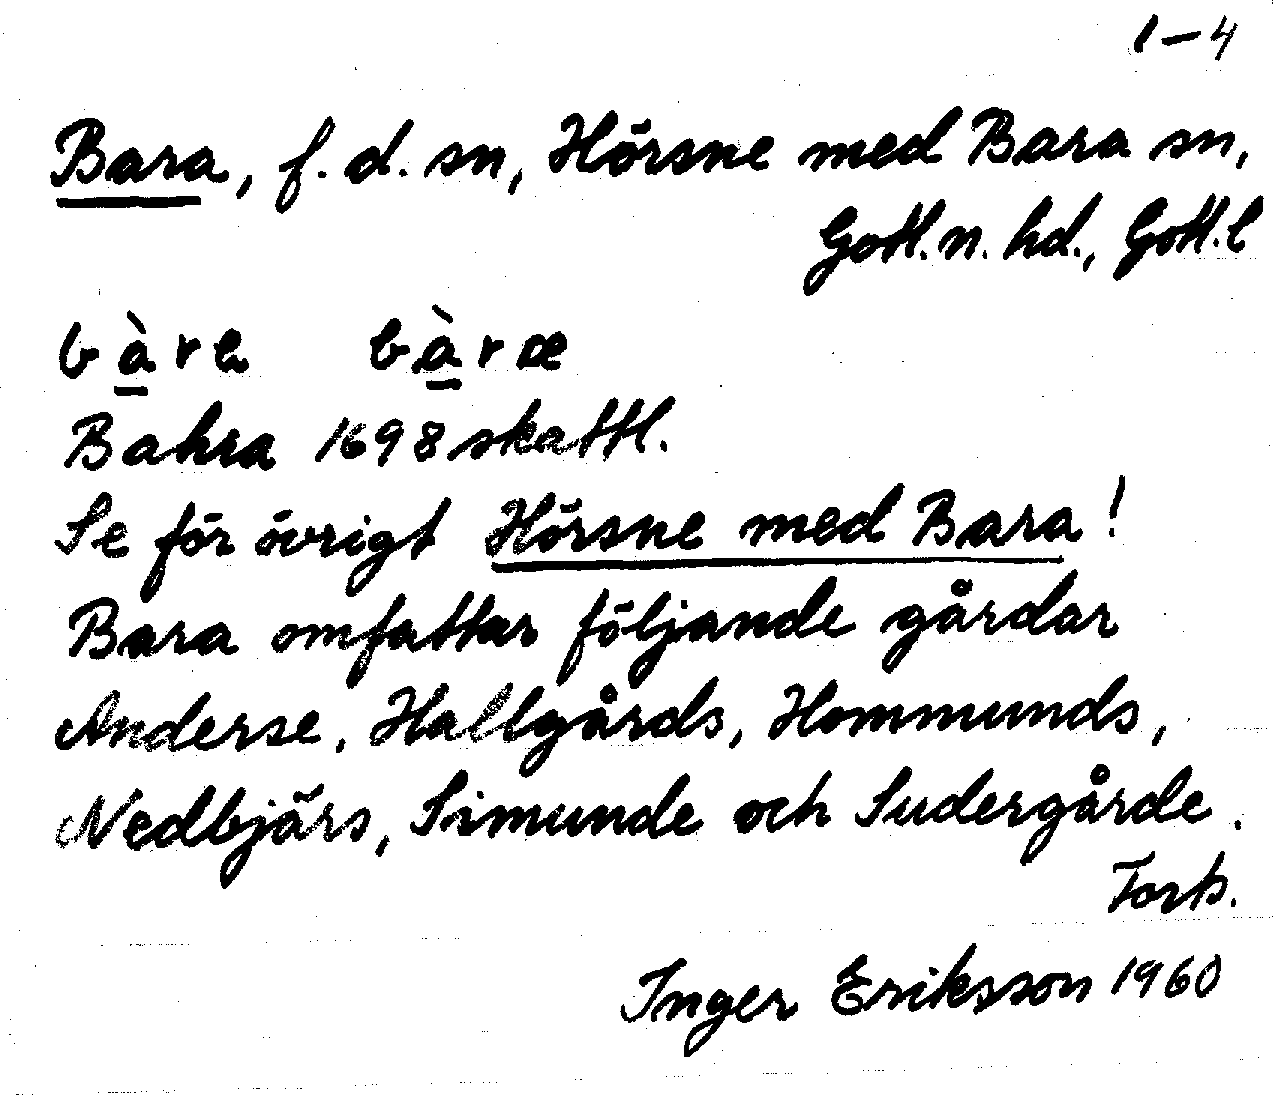 1–4
Bara, f. d. sn, Hörsne med Bara sn,
Gotl. n. hd., Gotl. l
bàra bàræ
Bahra 1698 skattl.
Se för övrigt Hörsne med Bara!
Bara omfattar följande gårdar
Anderse, Hallgårds, Hommunds,
Nedbjärs, Simunde och Sudergårde.
Forts.
Inger Eriksson 1960